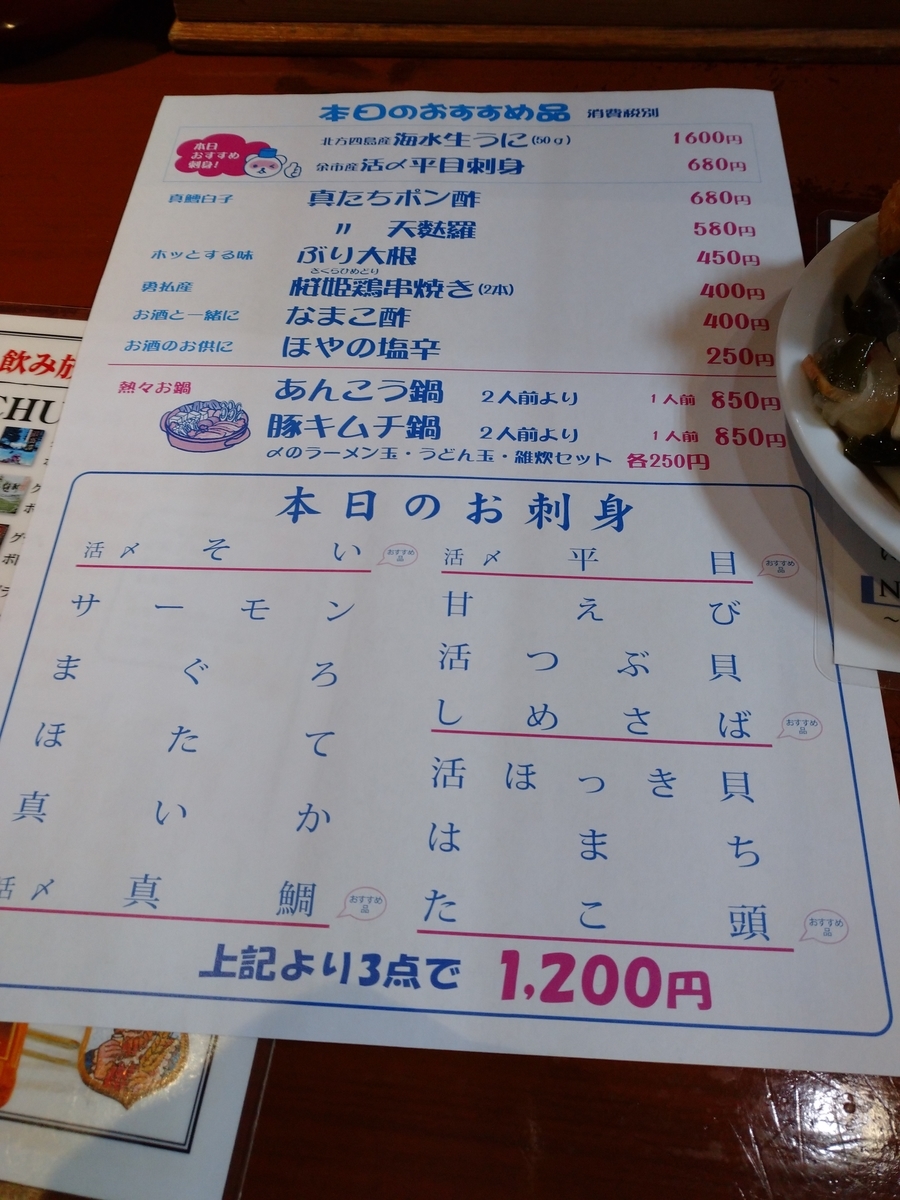 本日のおすすめ品 消費税別
本日
おすすめ
刺身!
北方四島産 海水生うに(50g) 1600円
余市産 活〆平目刺身 680円
真鱈白子 真たちポン酢 680円
〃 天麩羅 580円
ホッとする味 ぶり大根 450円
さくらひめどり
勇払産 桜姫鶏串焼き(2本) 400円
お酒と一緒に なまこ酢 400円
お酒のお供に ほやの塩辛 250円
熱々お鍋 あんこう鍋 2人前より 1人前 850円
豚キムチ鍋 2人前より 1人前 850円
〆のラーメン玉・うどん玉・雑炊セット 各250円
本日のお刺身
活〆そい おすすめ品
サーモン
まぐろ
ほたて
真いか
活〆真鯛 おすすめ品
活〆平目 おすすめ品
甘えび
活つぶ貝
しめさば おすすめ品
活ほっき貝
はまち
たこ頭 おすすめ品
上記より3点で 1,200円
飲み放
CHU